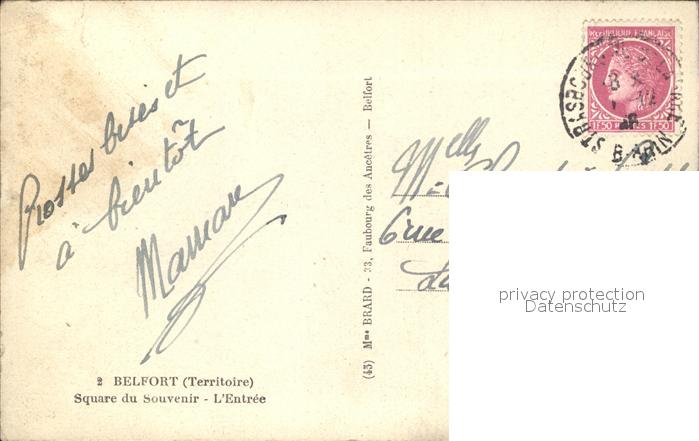 Grosses bises et
à bientôt
Maman
2 BELFORT (Territoire)
Square du Souvenir - L'Entrée
(45) Mme BRARD - 33, Faubourg des Ancêtres — Belfort
REPUBLIQUE FRANÇAISE
1F50 POSTES 1F50
STRASBOURG
BAR
Melle
6 rue
privacy protection
Datenschutz